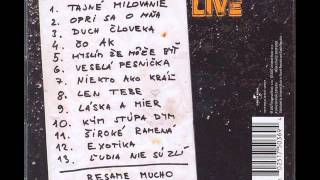 LIVE
1. TAJNÉ MILOVANIE
2. OPRI SA O MŇA
3. DUCH ČLOVEKA
4. ČO AK
5. MYSLÍM ŽE MÔŽE BYŤ
6. VESELÁ PESNIČKA
7. NIEKTO AKO KRÁĽ
8. LEN TEBE
9. LÁSKA A MIER
10. KÝM STÚPA DYM
11. ŠIROKÉ RAMENÁ
12. EXOTIKA
13. ĽUDIA NIE SÚ ZLÍ
BESAME MUCHO